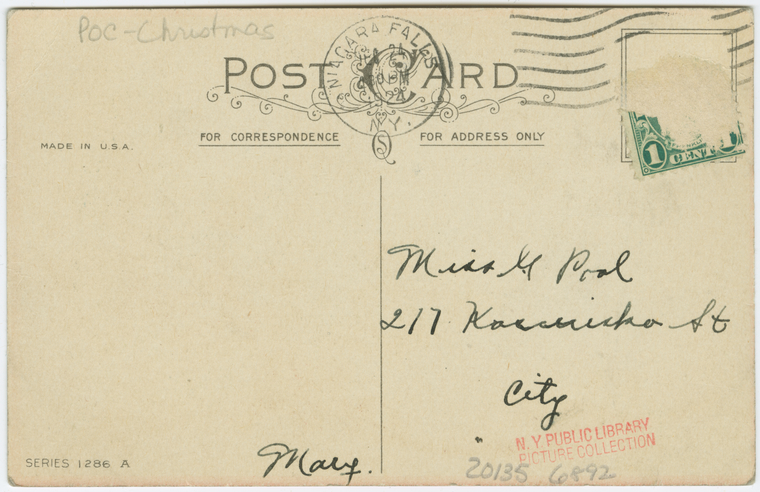 POC-Christmas
POST CARD
NIAGARA FALLS
1924
N.Y.
FOR CORRESPONDENCE
FOR ADDRESS ONLY
MADE IN U.S.A.
1 CENT 1
Miss G Pool
217 Kosciusko St
City
Mary.
N.Y. PUBLIC LIBRARY
PICTURE COLLECTION
20135 6892
SERIES 1286 A